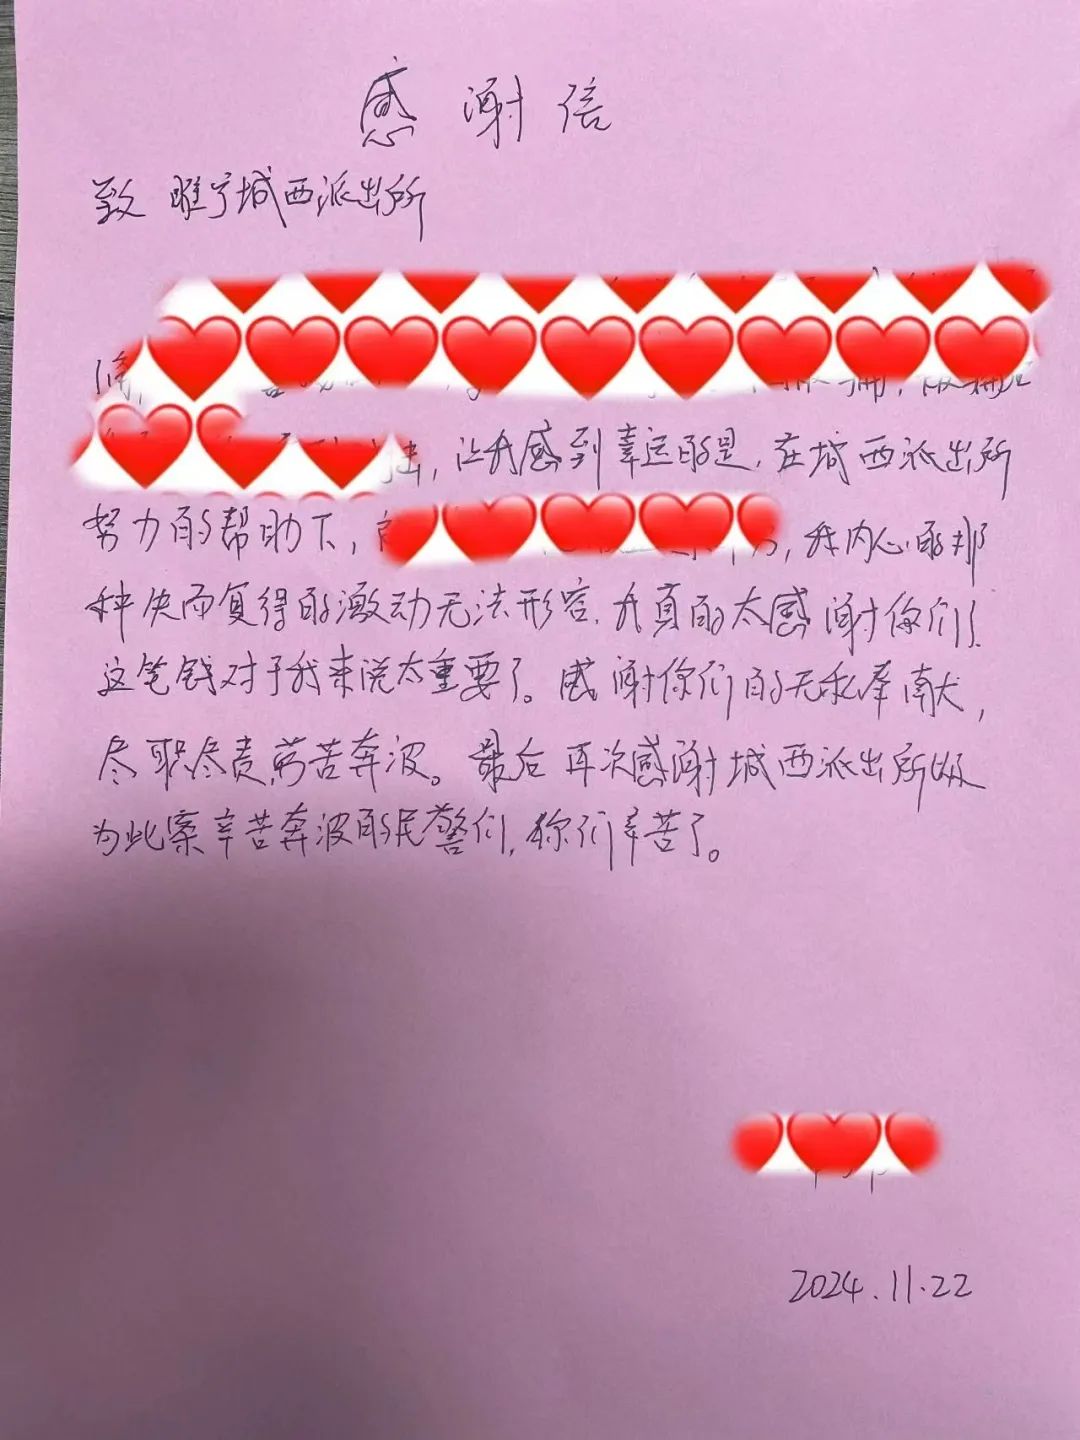 感谢信
致 睢宁城西派出所
让我感到幸运的是,在城西派出所
努力的帮助下,
,我内心的那
种失而复得的激动无法形容,我真的太感谢你们了.
这笔钱对于我来说太重要了。感谢你们的无私奉献,
尽职尽责,劳苦奔波。最后再次感谢城西派出所及
为此案辛苦奔波的民警们,你们辛苦了。
2024.11.22